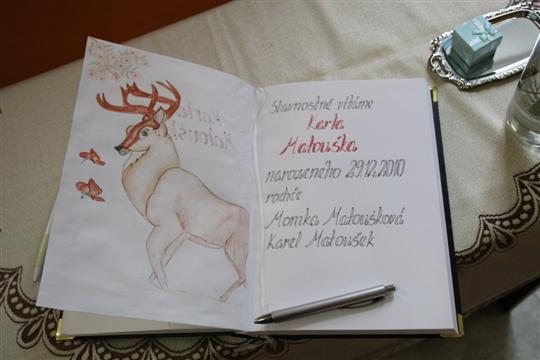 Slavnostně vítáme
Karla
Matouška
narozeného 29.12.2010
rodiče
Monika Matoušková
Karel Matoušek